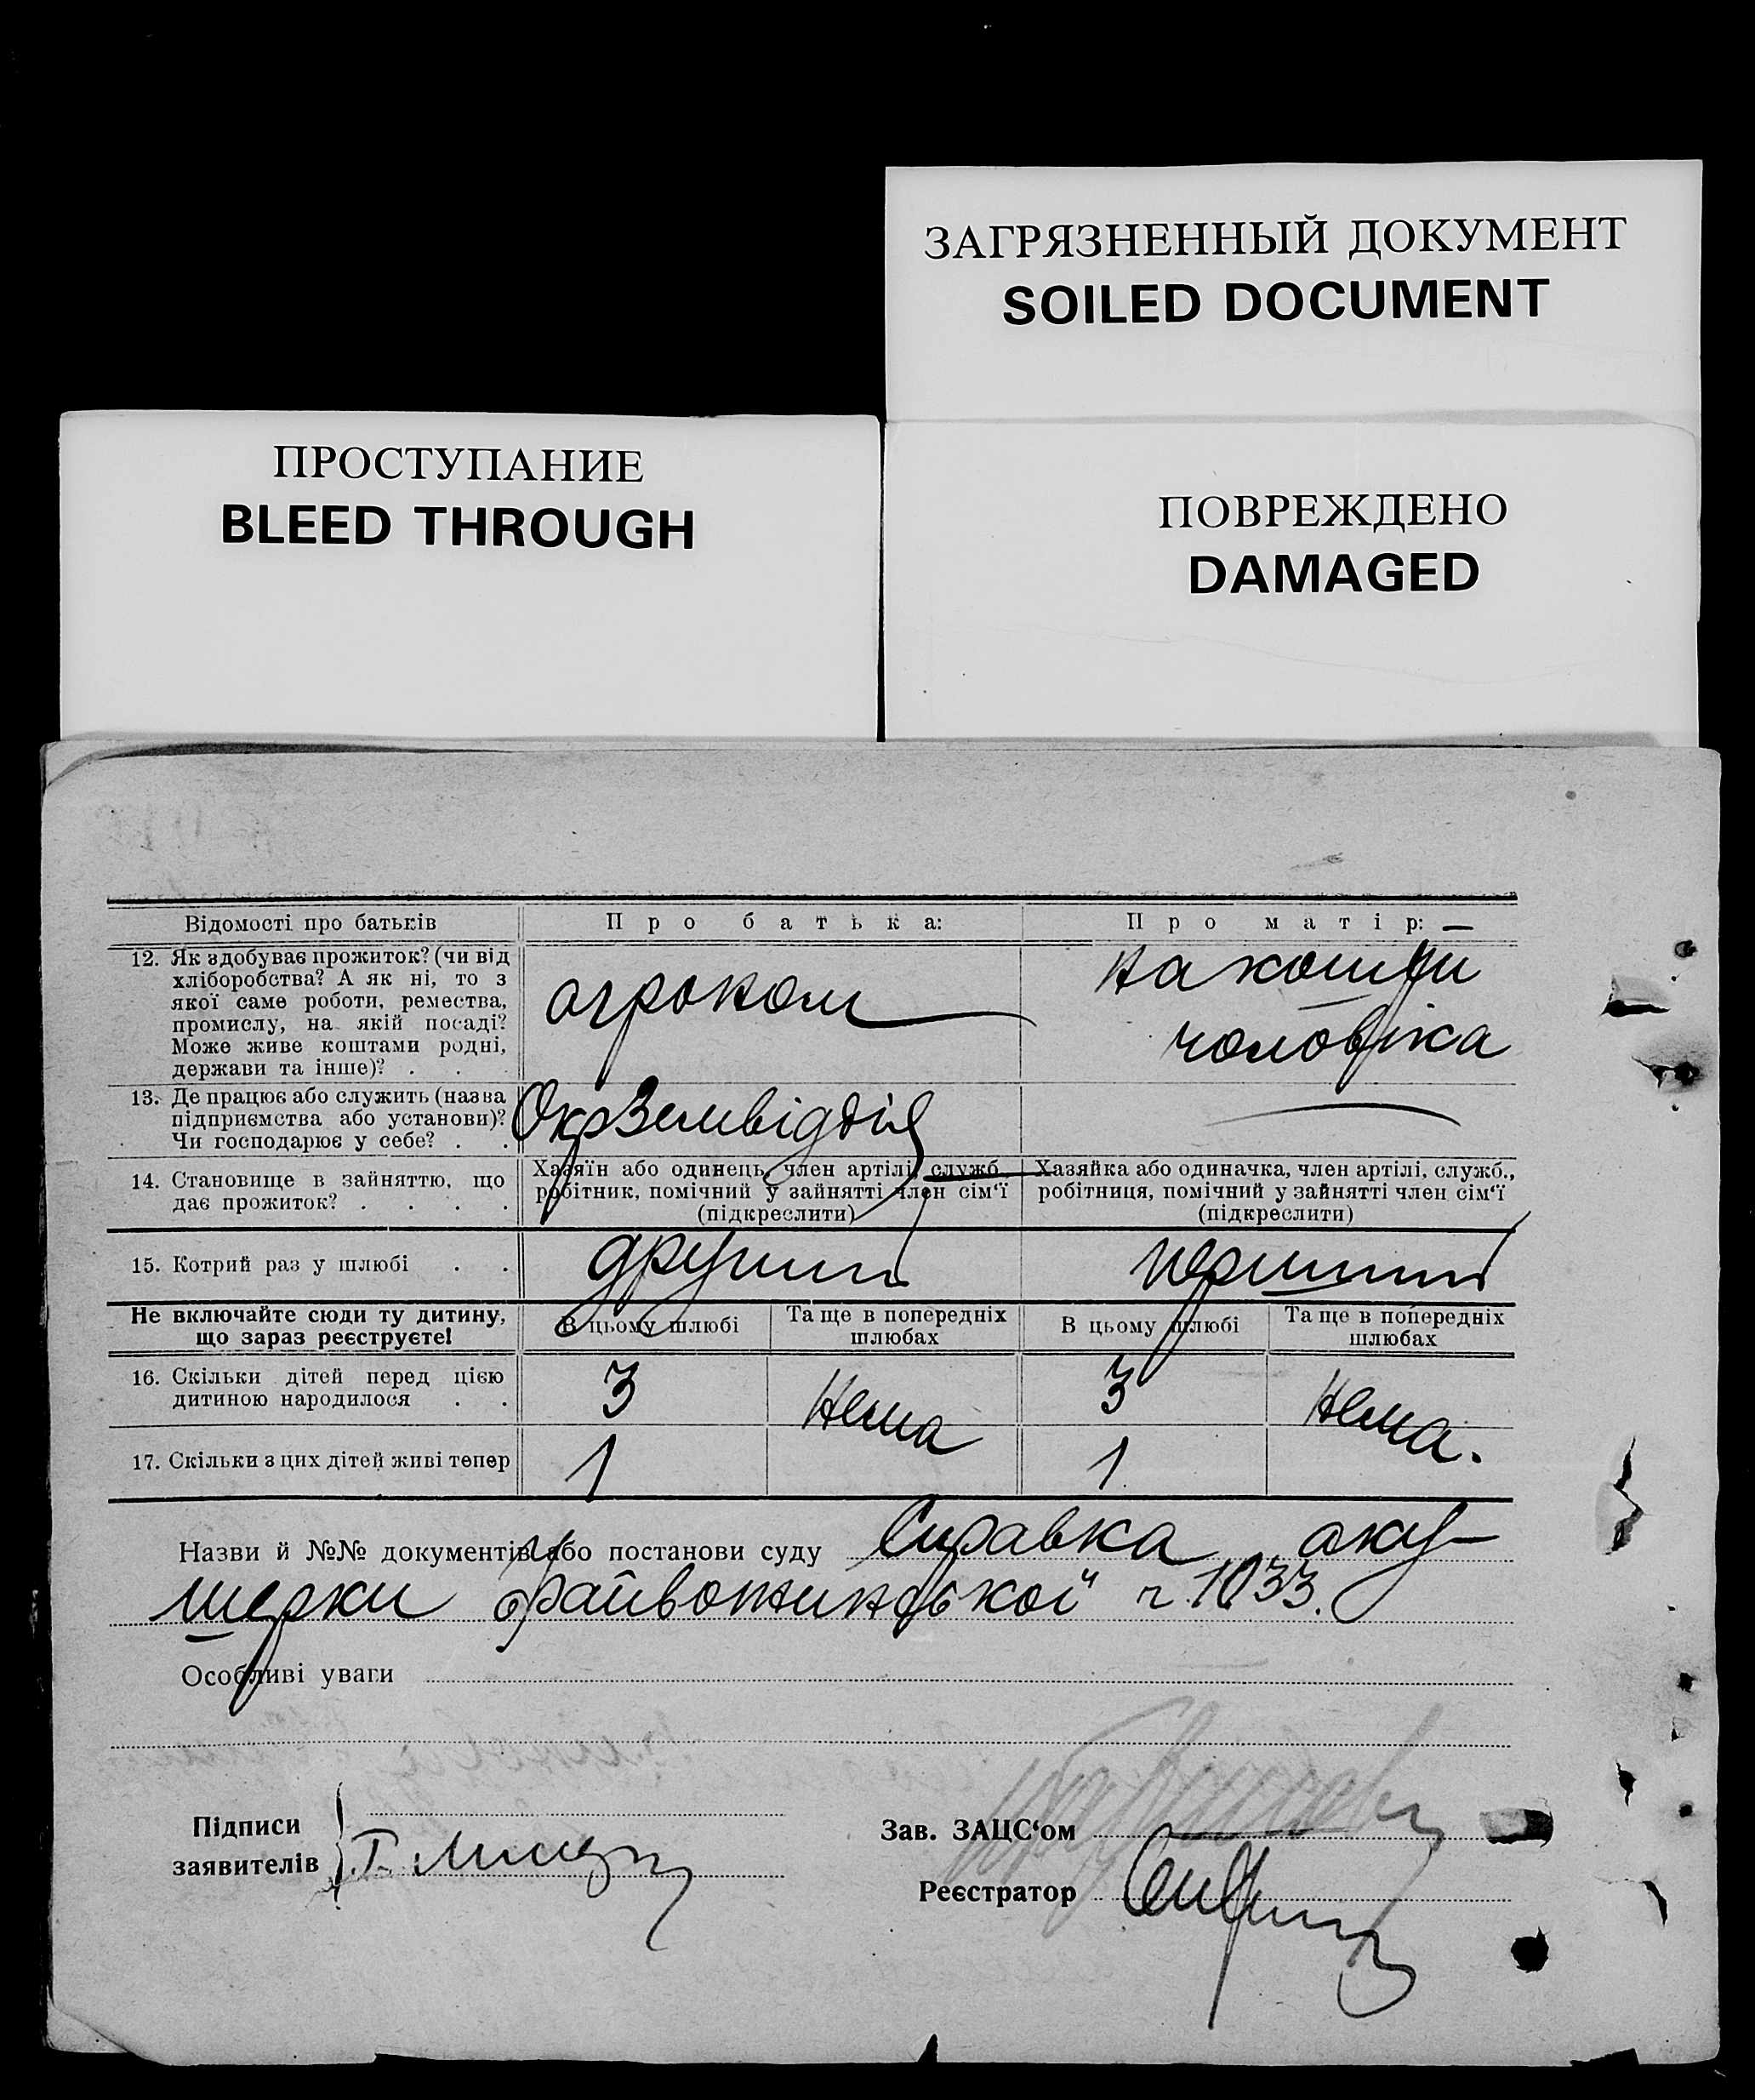 ЗАГРЯЗНЕННЫЙ ДОКУМЕНТ
SOILED DOCUMENT
ПРОСТУПАНИЕ
BLEED THROUGH
ПОВРЕЖДЕНО
DAMAGED
Відомості про батьків
Про батька:
Про матір:
12. Як здобуває прожиток? (чи від
хліборобства? А як ні, то з
якої саме роботи, ремества,
промислу, на якій посаді?
Може живе коштами родні,
держави та інше)? . . .
агроном
на кошти
чоловіка
13. Де працює або служить (назва
підприємства або установи)?
Чи господарює у себе? . .
ОкрЗемвідділ
14. Становище в зайняттю, що
дає прожиток? . . . .
Хазяїн або одинець, член артілі, служб.,
робітник, помічний у зайнятті член сім‘ї
(підкреслити)
Хазяйка або одиначка, член артілі, служб.,
робітниця, помічний у зайнятті член сім‘ї
(підкреслити)
15. Котрий раз у шлюбі . .
другий
перший
Не включайте сюди ту дитину,
що зараз реєструєте!
В цьому шлюбі
Та ще в попередніх
шлюбах
В цьому шлюбі
Та ще в попередніх
шлюбах
16. Скільки дітей перед цією
дитиною народилося . .
3
Нема
3
Нема.
17. Скільки з цих дітей живі тепер
1
1
Назви й №№ документів або постанови суду Справка аку-
шерки ч. 1033.
Особливі уваги
Підписи
заявителів
Г.
Зав. ЗАЦС‘ом
Реєстратор